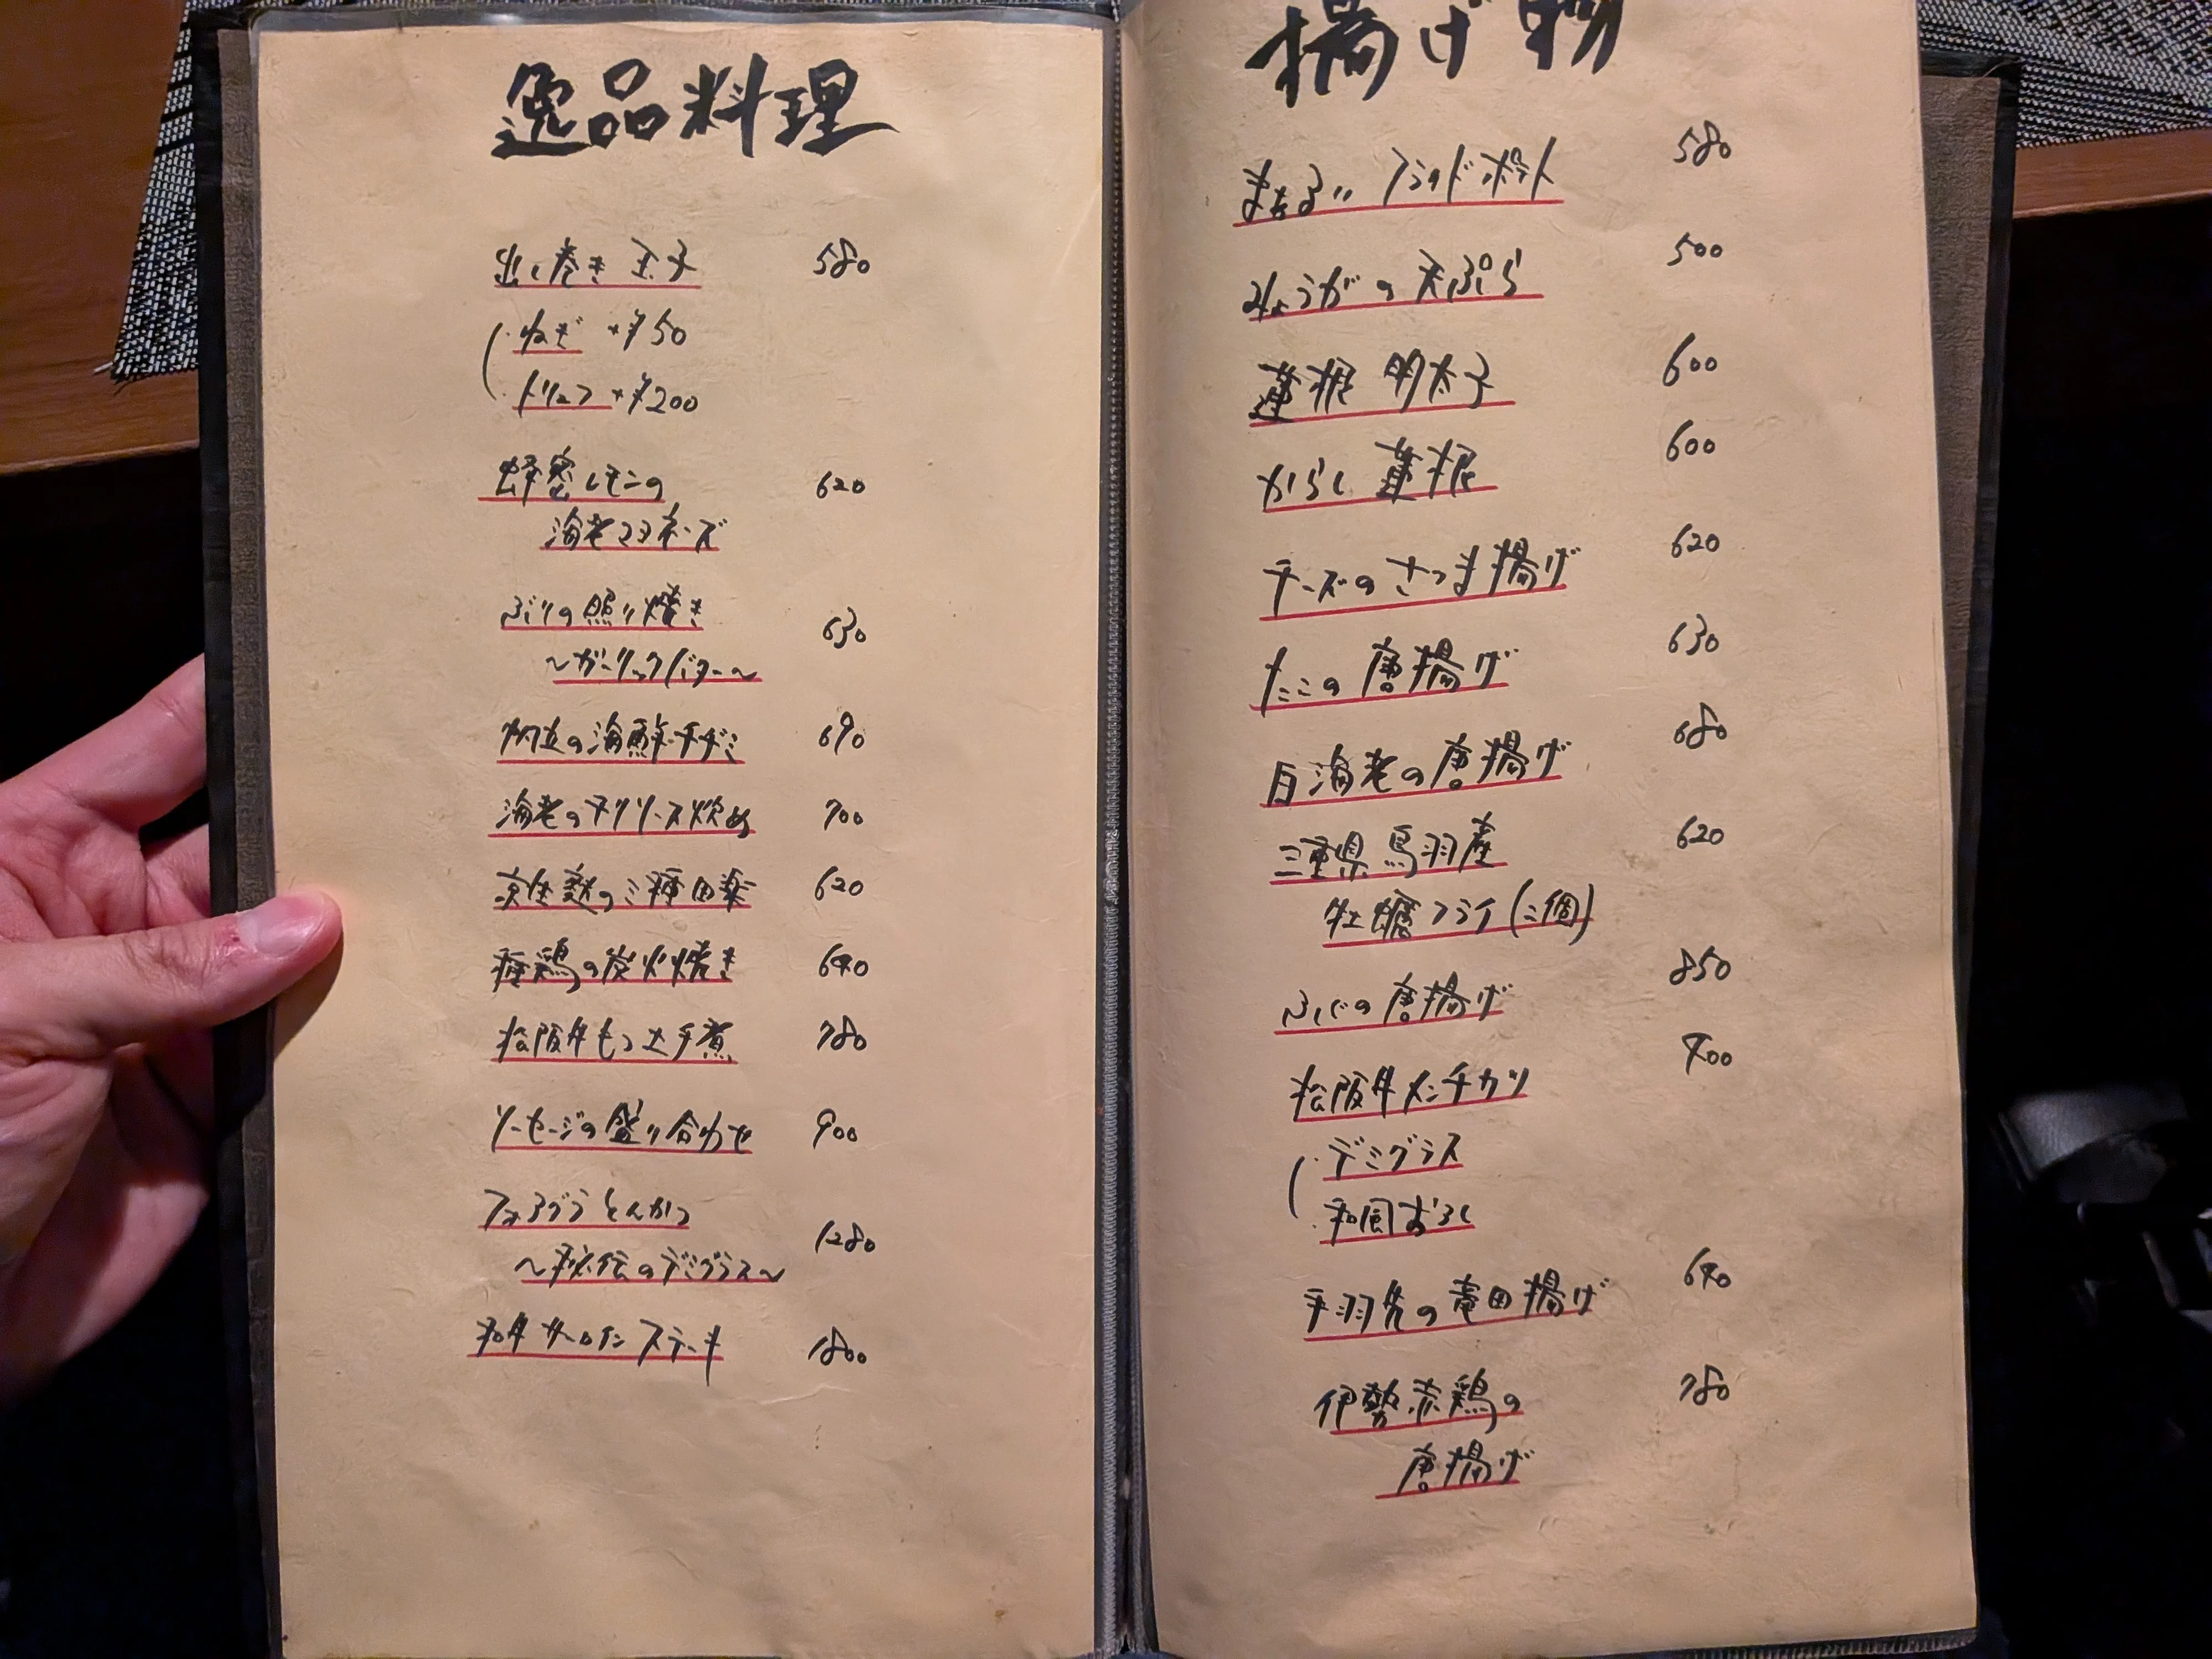 逸品料理
出し巻き玉子 580
・ねぎ +¥50
・トリュフ +¥200
蜂蜜レモンの 620
海老マヨネーズ
ぶりの照り焼き 630
〜ガーリックバター〜
帆立の海鮮チヂミ 690
海老のチリソース炒め 700
京生麩の三種田楽 620
種鶏の炭火焼き 640
松阪牛もつ土手煮 780
ソーセージの盛り合わせ 900
フォアグラとんかつ 1280
〜秘伝のデミグラス〜
和牛サーロインステーキ 1800
揚げ物
フライドポテト 580
みょうがの天ぷら 500
蓮根明太子 600
からし蓮根 600
チーズのさつま揚げ 620
たこの唐揚げ 630
白海老の唐揚げ 680
三重県鳥羽産 620
牡蠣フライ(二個)
ふぐの唐揚げ 850
松阪牛メンチカツ 900
・デミグラス
・和風おろし
手羽先の竜田揚げ 640
伊勢赤鶏の 780
唐揚げ